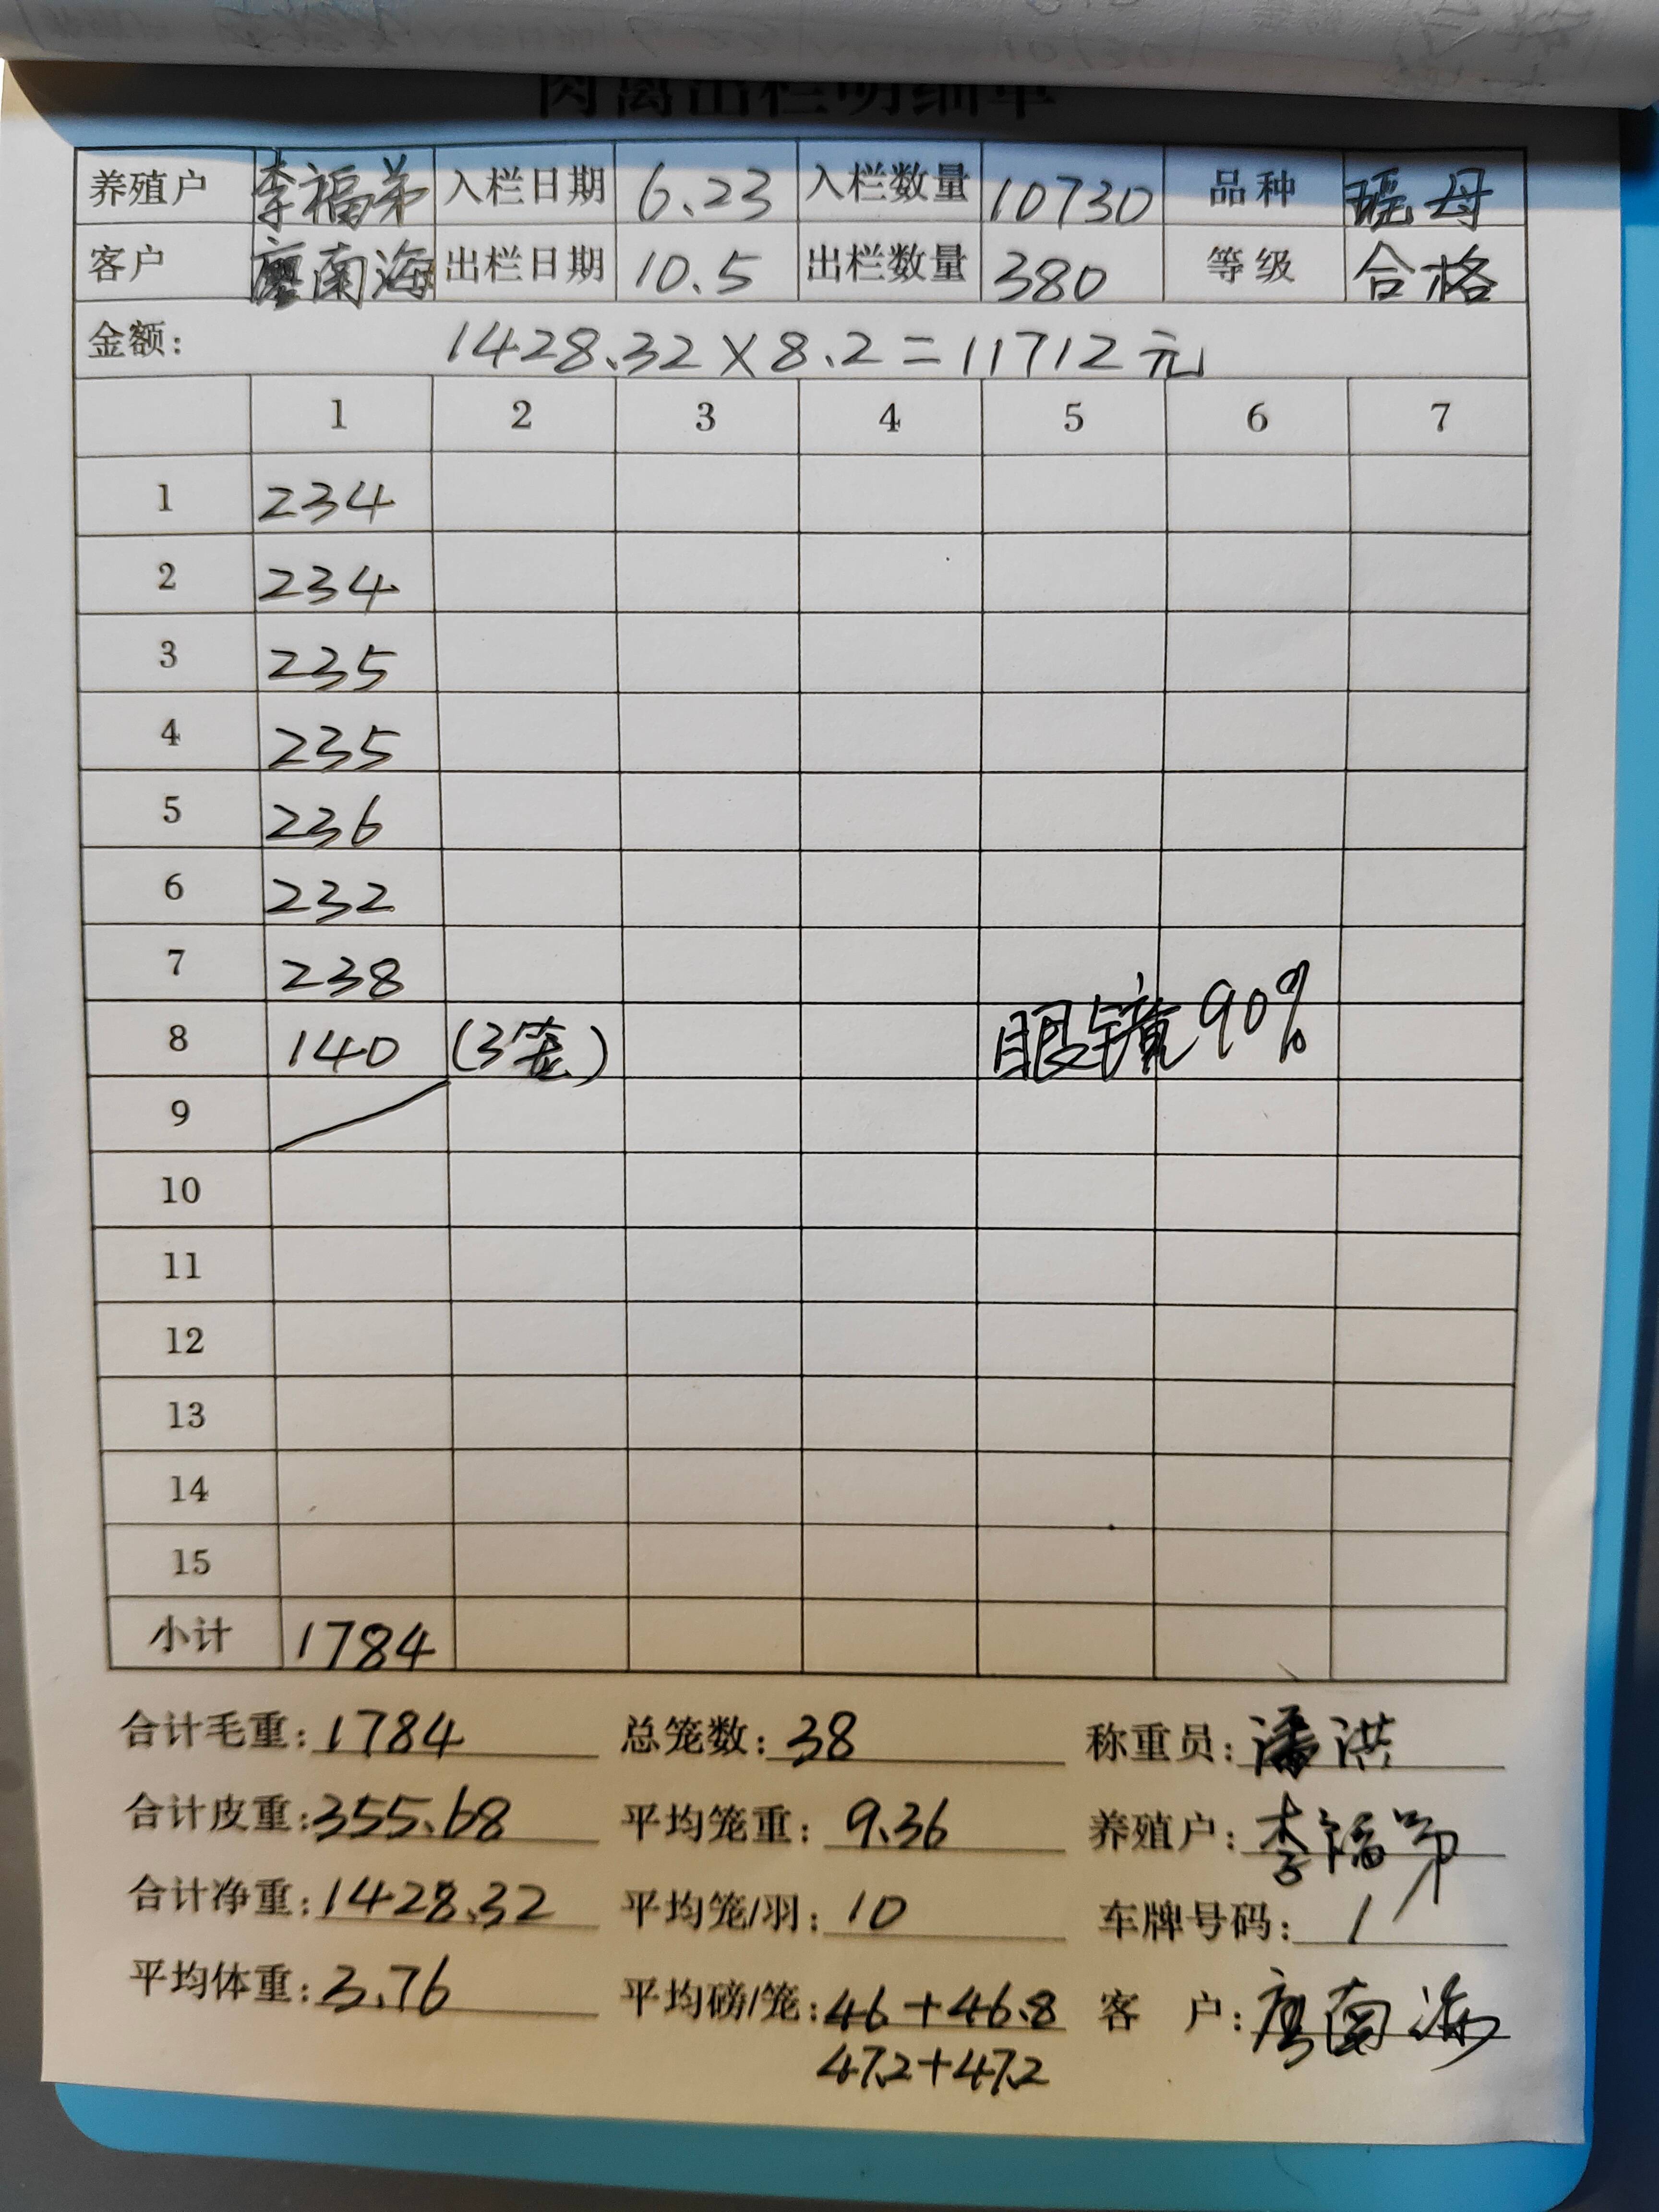 肉禽出栏明细单
养殖户 李福弟 入栏日期 6.23 入栏数量 10730 品种 瑶母
客户 廖南海 出栏日期 10.5 出栏数量 380 等级 合格
金额: 1428.32×8.2=11712元
1 2 3 4 5 6 7
1 234
2 234
3 235
4 235
5 236
6 232
7 238
8 140 (3笼) 眼镜90%
9
10
11
12
13
14
15
小计 1784
合计毛重: 1784 总笼数: 38 称重员: 潘洪
合计皮重: 355.68 平均笼重: 9.36 养殖户: 李福弟
合计净重: 1428.32 平均笼/羽: 10 车牌号码: 1
平均体重: 3.76 平均磅/笼: 46+46.8 客户: 廖南海
47.2+47.2